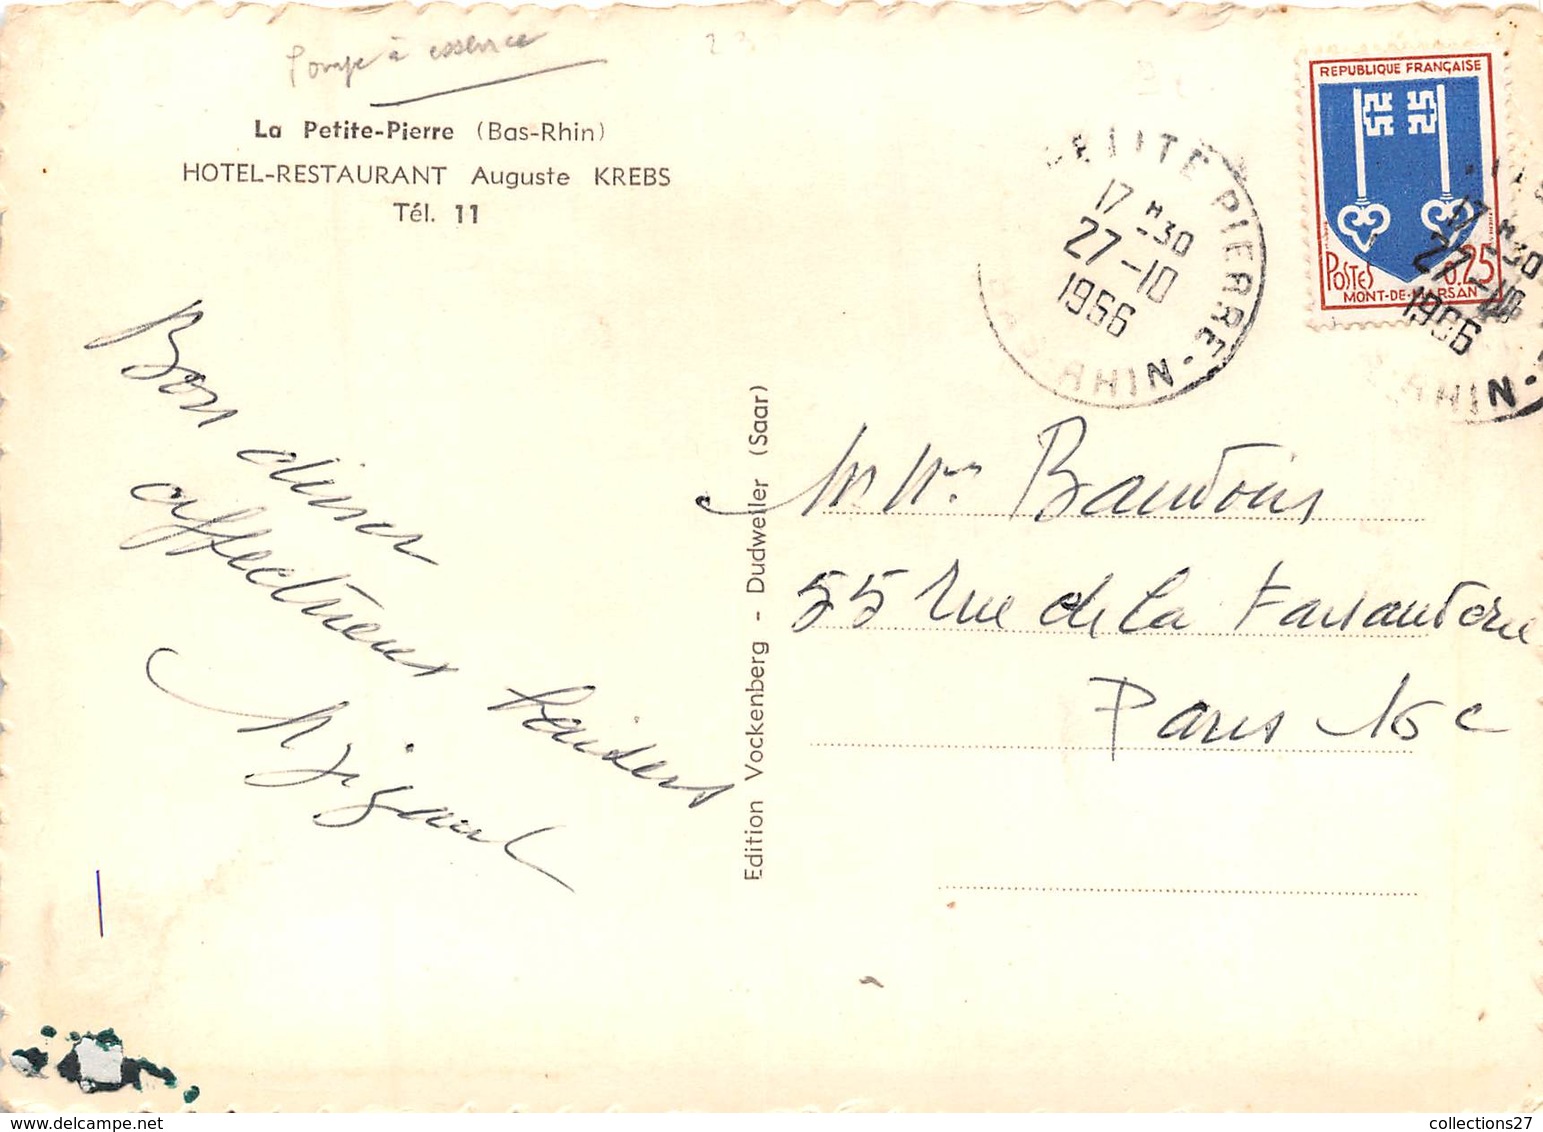 Pompe à essence
La Petite-Pierre (Bas-Rhin)
HOTEL-RESTAURANT Auguste KREBS
Tél. 11
REPUBLIQUE FRANÇAISE
POSTES
0.25
MONT-DE-MARSAN
PETITE PIERRE - BAS-RHIN
17 H 30
27-10
1966
17 H 30
27-10
1966
RHIN
Bon dîner
affectueux baisers
Edition Vockenberg - Dudweiler (Saar)
55 rue de la
Paris
collections27